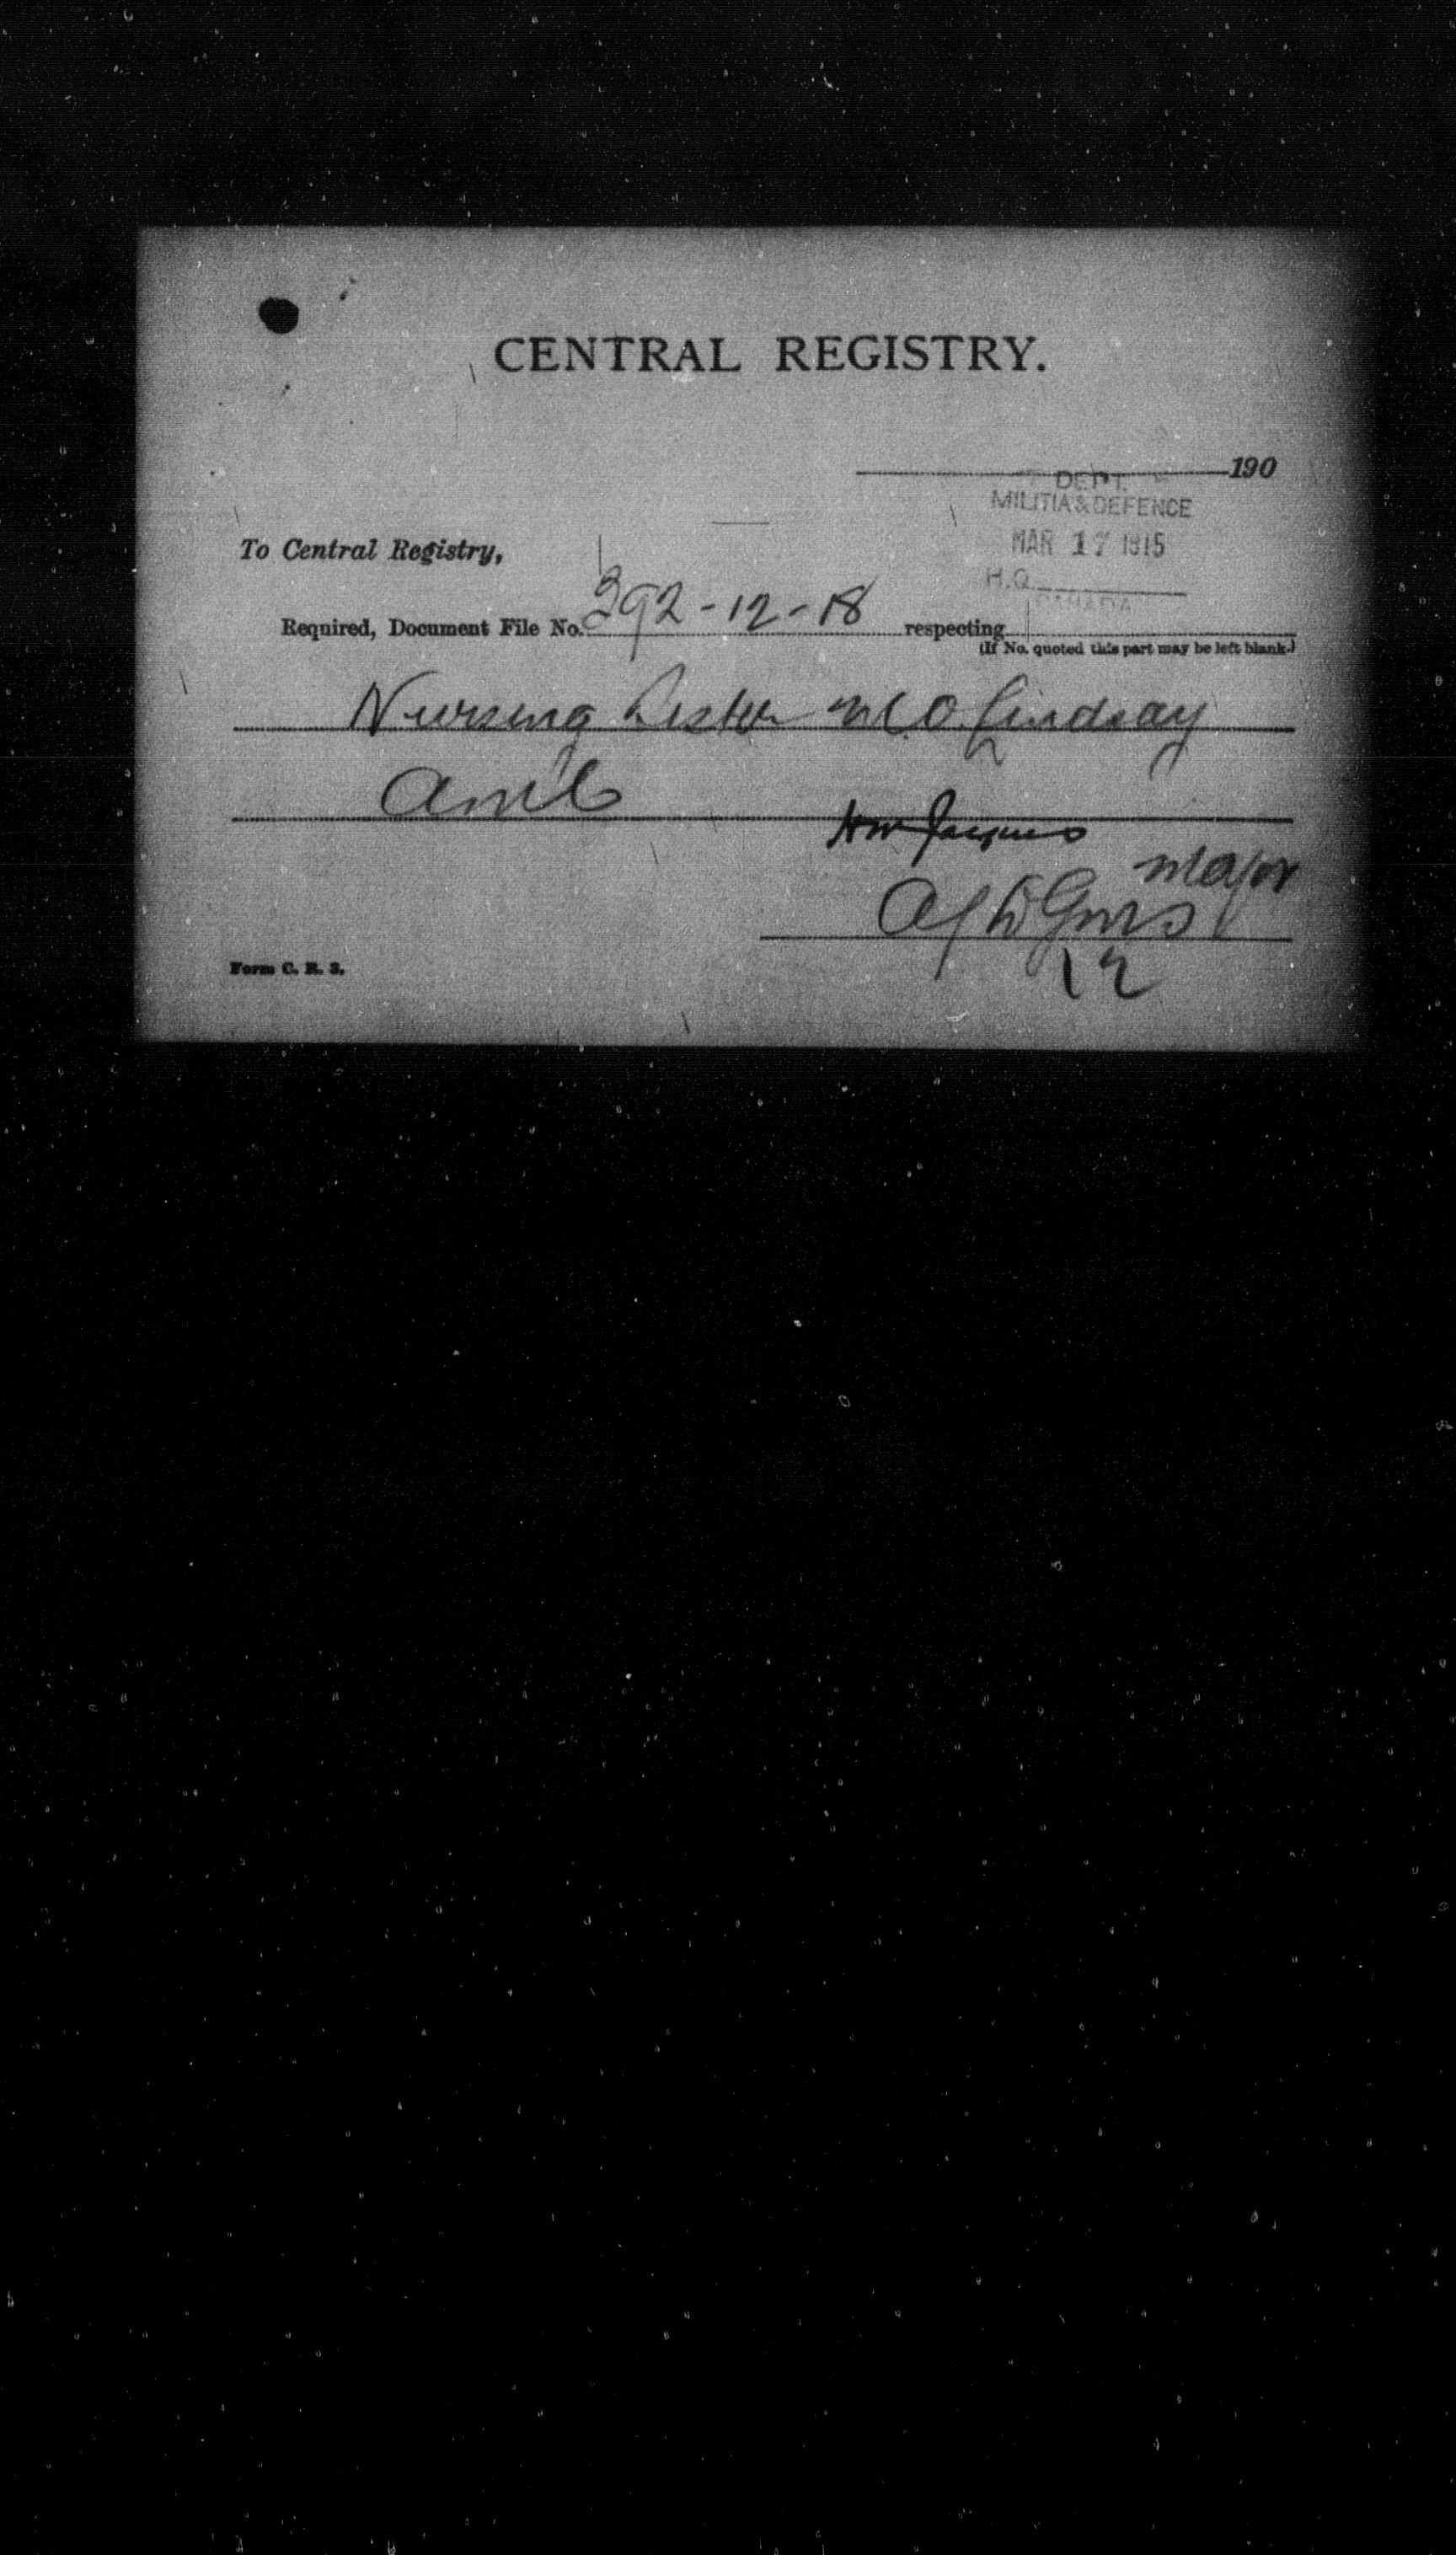 CENTRAL REGISTRY.
190
DEPT.
MILITIA & DEFENCE
MAR 17 1915
H.Q.
CANADA
To Central Registry,
Required, Document File No. 392-12-18 respecting
(If No. quoted this part may be left blank.)
Nursing Sister M.O. Lindsay
AMC
HM Jacques
Major
12
Form C. R. 2.